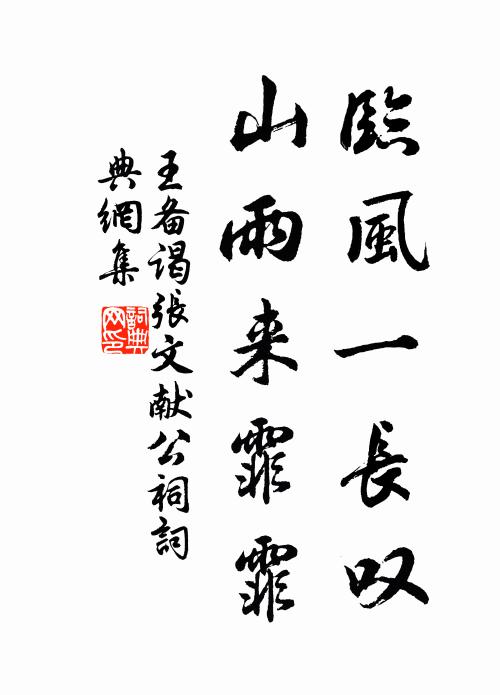 臨風一長叹
山雨来霏霏
王备谒張文献公祠詞
典網集
詞典网印